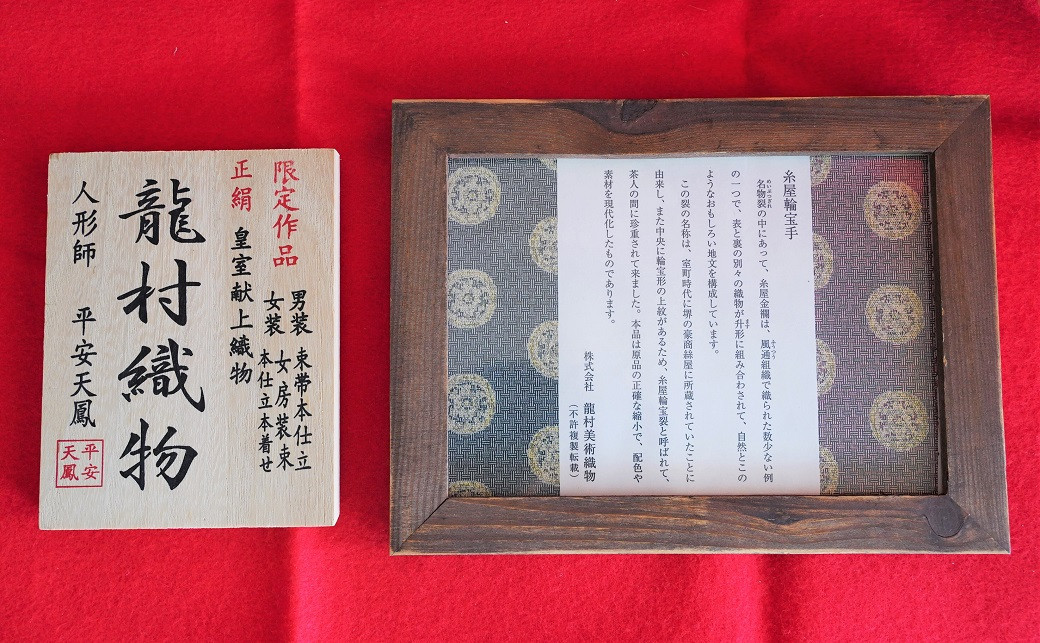 限定作品
男装 束帯本仕立
女装 女房装束
本仕立本着せ
正絹 皇室献上織物
龍村織物
人形師 平安天鳳
平安
天鳳
糸屋輪宝手
名物裂の中にあって、糸屋金襴は、風通組織で織られた数少ない例
の一つで、表と裏の別々の織物が升形に組み合わされて、自然とこの
ようなおもしろい地文を構成しています。
この裂の名称は、室町時代に堺の豪商絲屋に所蔵されていたことに
由来し、また中央に輪宝形の上紋があるため、糸屋輪宝裂と呼ばれて、
茶人の間に珍重されて来ました。本品は原品の正確な縮小で、配色や
素材を現代化したものであります。
株式会社 龍村美術織物
(不許複製転載)